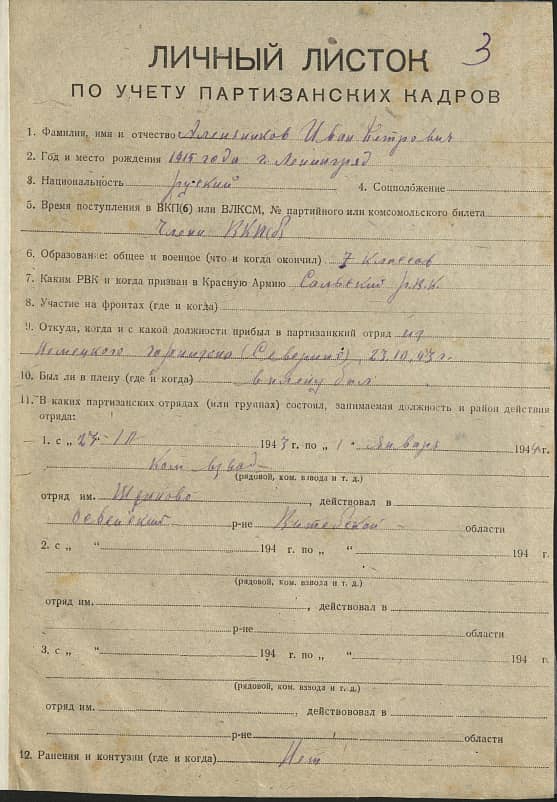 3
ЛИЧНЫЙ ЛИСТОК
ПО УЧЕТУ ПАРТИЗАНСКИХ КАДРОВ
1. Фамилия, имя и отчество Иван Петрович
2. Год и место рождения 1915 года г. Ленинград
3. Национальность русский 4. Соцположение
5. Время поступления в ВКП(б) или ВЛКСМ, № партийного или комсомольского билета
Член ВКПб
6. Образование: общее и военное (что и когда окончил) 7 классов
7. Каким РВК и когда призван в Красную Армию Сальский р.в.к.
8. Участие на фронтах (где и когда)
9. Откуда, когда и с какой должности прибыл в партизанкий отряд из
Немецкого гарнизона 23.10.43 г.
10. Был ли в плену (где и когда) в плену был
11. В каких партизанских отрядах (или группах) состоял, занимаемая должность и район действия
отряда:
1. с „ 1943 г. по „ 1 " Январь 1944 г.
Ком взвод
(рядовой, ком. взвода и т. д.)
отряд им. , действовал в
Освейский р-не Витебской области
2. с „ " 194 г. по „ " 194 г.
(рядовой, ком. взвода и т. д.)
отряд им. , действовал в
р-не области
3. с „ " 194 г. по „ " 194 г.
(рядовой, ком. взвода и т. д.)
отряд им. , действововал в
р-не области
12. Ранения и контузии (где и когда) Нет